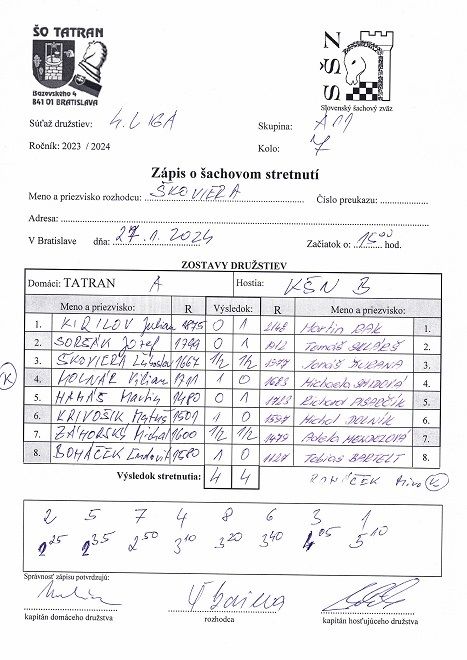 ŠO TATRAN
Bazovského 4
841 01 BRATISLAVA
SŠN
Slovenský šachový zväz
Súťaž družstiev: 4. LIGA
Skupina: A11
Ročník: 2023 / 2024
Kolo: 7
Zápis o šachovom stretnutí
Meno a priezvisko rozhodcu: ŠKOVIERA
Číslo preukazu:
Adresa:
V Bratislave dňa: 27.1.2024 Začiatok o: 15 00 hod.
ZOSTAVY DRUŽSTIEV
Domáci: TATRAN A Hostia: KŠN B
Meno a priezvisko: R Výsledok: R Meno a priezvisko:
1. KIRILOV Julian 1875 0 1 2148 Martin 1.
2. Jozef 1799 0 1 Tomáš 2.
3. ŠKOVIERA 1667 1/2 1/2 Tomáš 3.
K
4. MOLNÁR Viliam 1711 1 0 Michaela 4.
5. Martin 1480 0 1 Richard 5.
6. KRIVOŠÍK Matúš 1501 1 0 1597 Michal 6.
7. ZÁHORSKÝ Michal 1600 1/2 1/2 1479 Adela 7.
8. BOHÁČEK 1580 1 0 Tobias BARTELT 8.
Výsledok stretnutia: 4 4
Miro K
2 5 7 4 8 6 3 1
2 25 2 35 2 50 3 10 3 20 3 40 4 05 5 10
Správnosť zápisu potvrdzujú:
kapitán domáceho družstva rozhodca kapitán hosťujúceho družstva